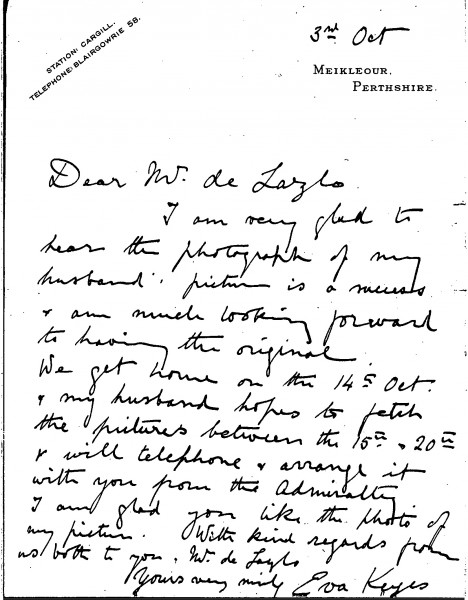 STATION: CARGILL.
TELEPHONE: BLAIRGOWRIE 58.
3rd Oct
MEIKLEOUR,
PERTHSHIRE.
Dear Mr. de Lazlo
I am very glad to
hear the photograph of my
husband's picture is a success
& am much looking forward
to having the original.
We get home on the 14th Oct.
& my husband hopes to fetch
the pictures between the 15th & 20th
& will telephone & arrange it
with you from the Admiralty
I am glad you like the photo of
my picture. With kind regards from
us both to you & Mr. de Lazlo
Yours very sincly Eva Keyes